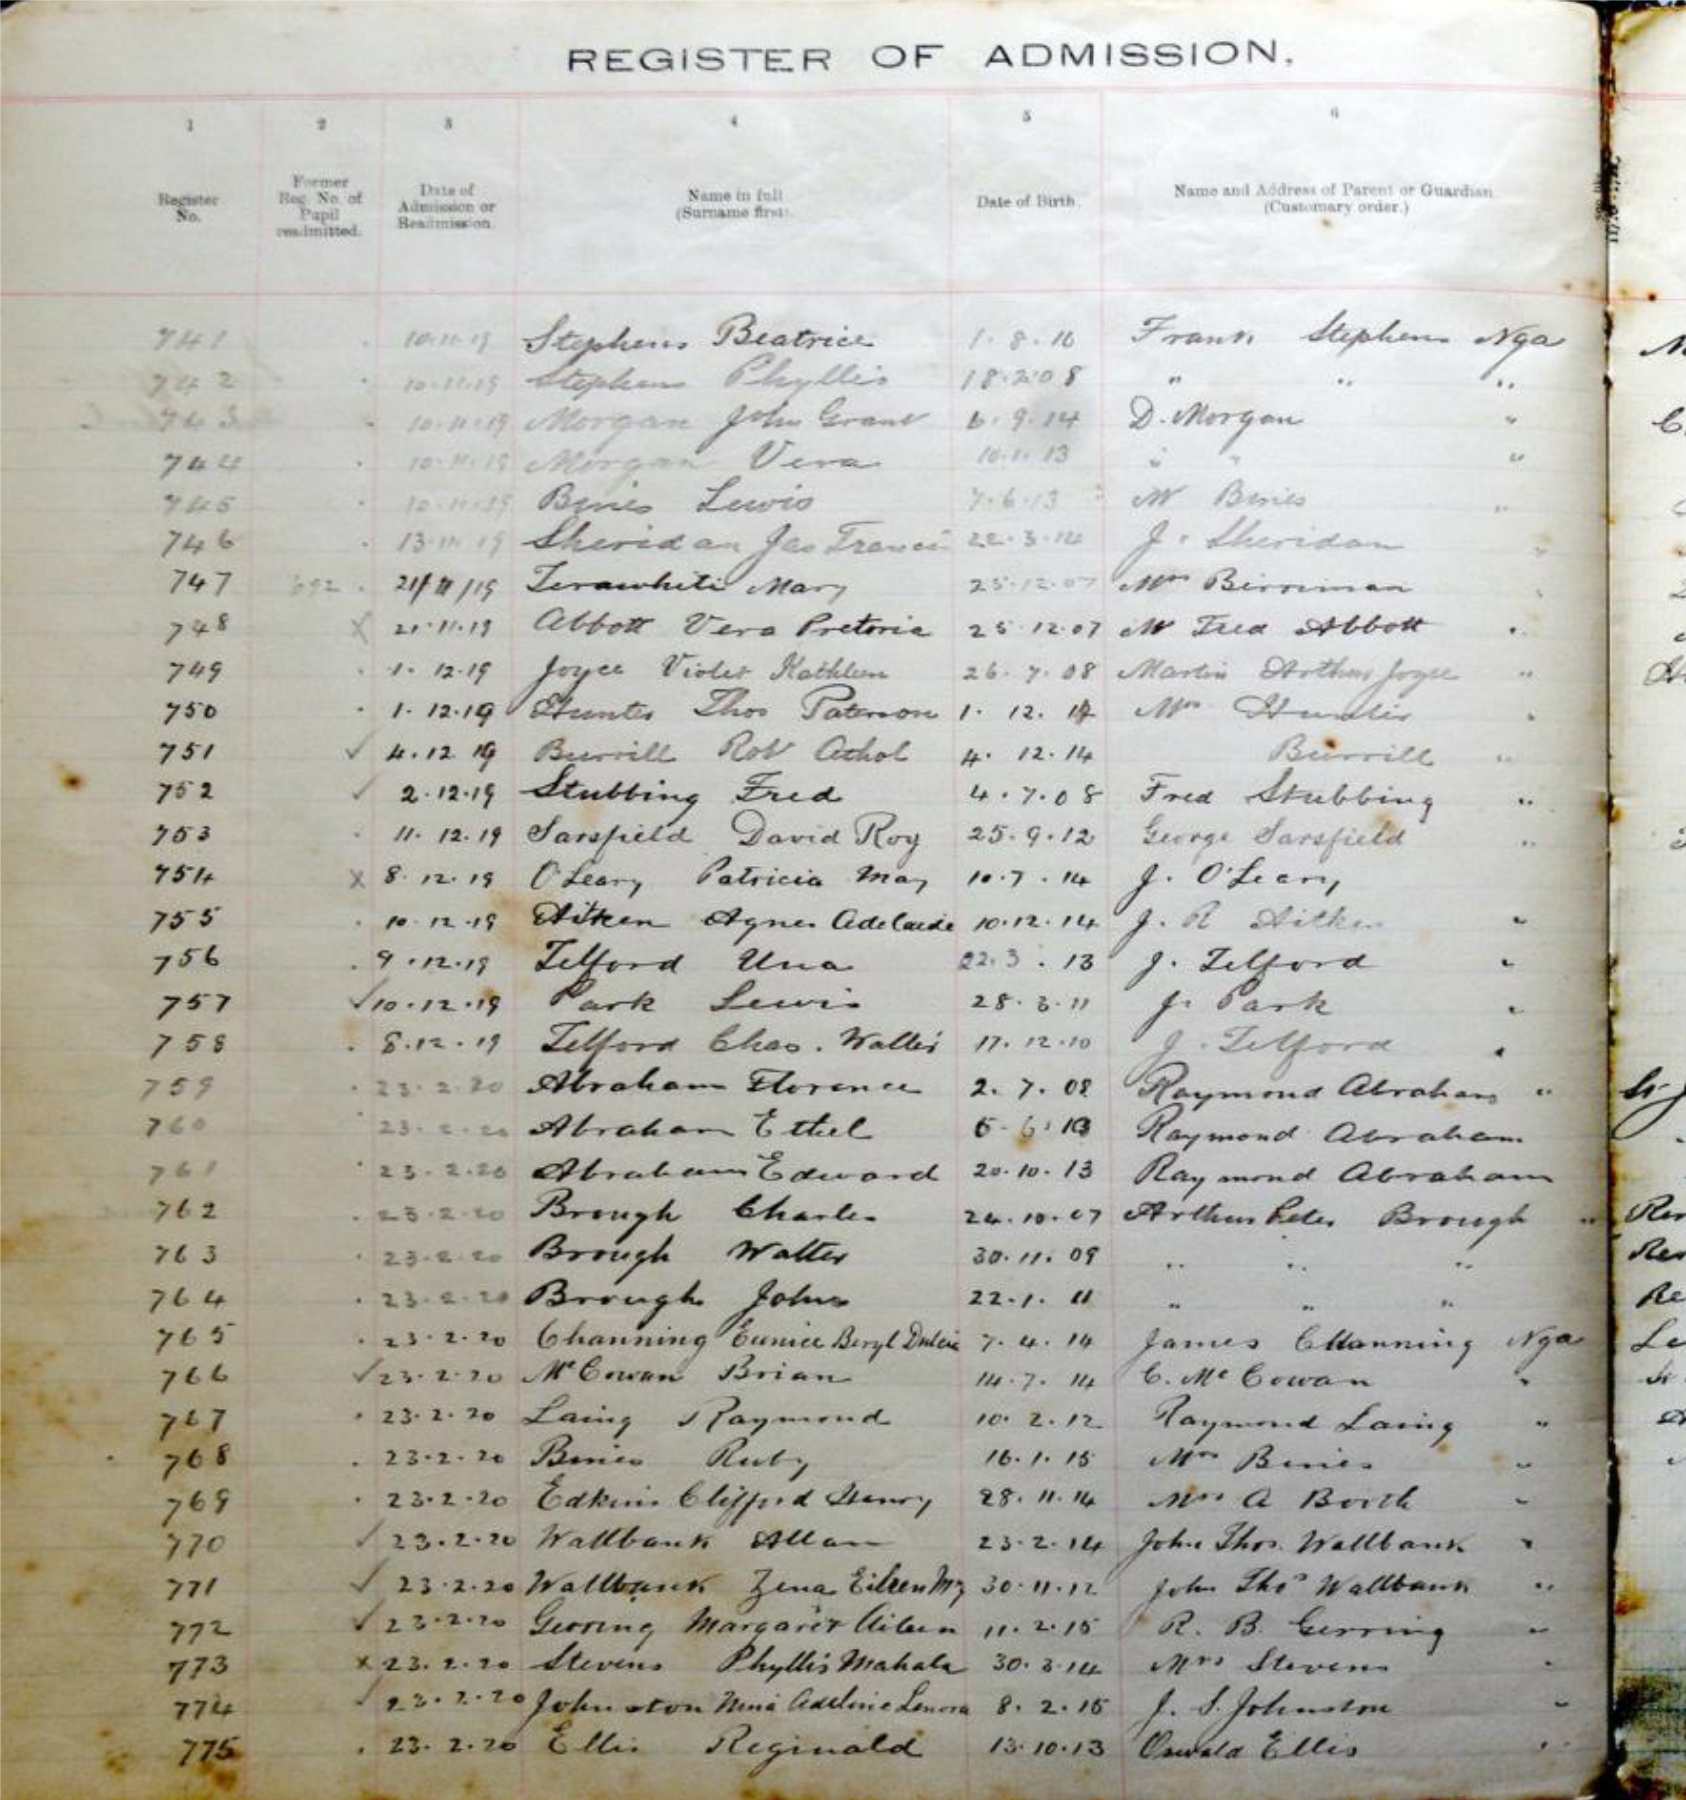 REGISTER OF ADMISSION.
1 2 3 4 5 6
Register No. Former Reg. No. of Pupil readmitted. Date of Admission or Readmission. Name in full (Surname first). Date of Birth. Name and Address of Parent or Guardian (Customary order.)
741 10.11.19 Stephens Beatrice 1.8.10 Frank Stephens Nga
742 10.11.19 Stephens Phyllis 18.2.08 " " "
743 10.11.19 Morgan John Grant 6.9.14 D. Morgan "
744 10.11.19 Morgan Vera 10.1.13 " " "
745 10.11.19 Bines Lewis 7.6.13 Mr Bines "
746 13.11.19 Sheridan Jas Francis 22.3.14 J. Sheridan "
747 692 21/11/19 Terawhiti Mary 25.12.07 Mrs Berriman
748 x 21.11.19 Abbott Vera Pretoria 25.12.07 Mr Fred Abbott "
749 1.12.19 Joyce Violet Kathleen 26.7.08 Martin Arthur Joyce "
750 1.12.19 Hunter Thos Paterson 1.12.14 Mrs Hunter "
751 ✓ 4.12.19 Burrill Robt Athol 4.12.14 Burrill "
752 ✓ 2.12.19 Stubbing Fred 4.7.08 Fred Stubbing "
753 11.12.19 Sarsfield David Roy 25.9.12 George Sarsfield "
754 x 8.12.19 O'Leary Patricia May 10.7.14 J. O'Leary
755 10.12.19 Aitken Agnes Adelaide 10.12.14 J. R Aitken "
756 9.12.19 Telford Una 22.3.13 J. Telford "
757 ✓ 10.12.19 Park Lewis 28.3.11 J. Park "
758 8.12.19 Telford Chas. Walter 17.12.10 J. Telford "
759 23.2.20 Abraham Florence 2.7.08 Raymond Abraham "
760 23.2.20 Abraham Ethel Raymond Abraham
761 23.2.20 Abraham Edward 20.10.13 Raymond Abraham
762 23.2.20 Brough Charles 24.10.07 Arthur Peter Brough "
763 23.2.20 Brough Walter 30.11.09 " " "
764 23.2.20 Brough John 22.1.11 " " "
765 23.2.20 Channing Eunice Beryl Dulcie 7.4.14 James Channing Nga
766 ✓ 23.2.20 McCowan Brian 14.7.14 C. McCowan "
767 23.2.20 Laing Raymond 10.2.12 Raymond Laing "
768 23.2.20 Bines Ruby 16.1.15 Mrs Bines "
769 23.2.20 Edkins Clifford Henry 28.11.14 Mrs A Booth "
770 ✓ 23.2.20 Wallbank Allan 23.2.14 John Thos. Wallbank "
771 ✓ 23.2.20 Wallbank Zena Eileen My 30.11.12 John Thos Wallbank "
772 ✓ 23.2.20 Gerring Margaret Aileen 11.2.15 R. B. Gerring "
773 x 23.2.20 Stevens Phyllis Mahala 30.3.14 Mrs Stevens "
774 ✓ 23.2.20 Johnston Nina Adeline Lenora 8.2.15 J. S. Johnston "
775 23.2.20 Ellis Reginald 13.10.13 Oswald Ellis "